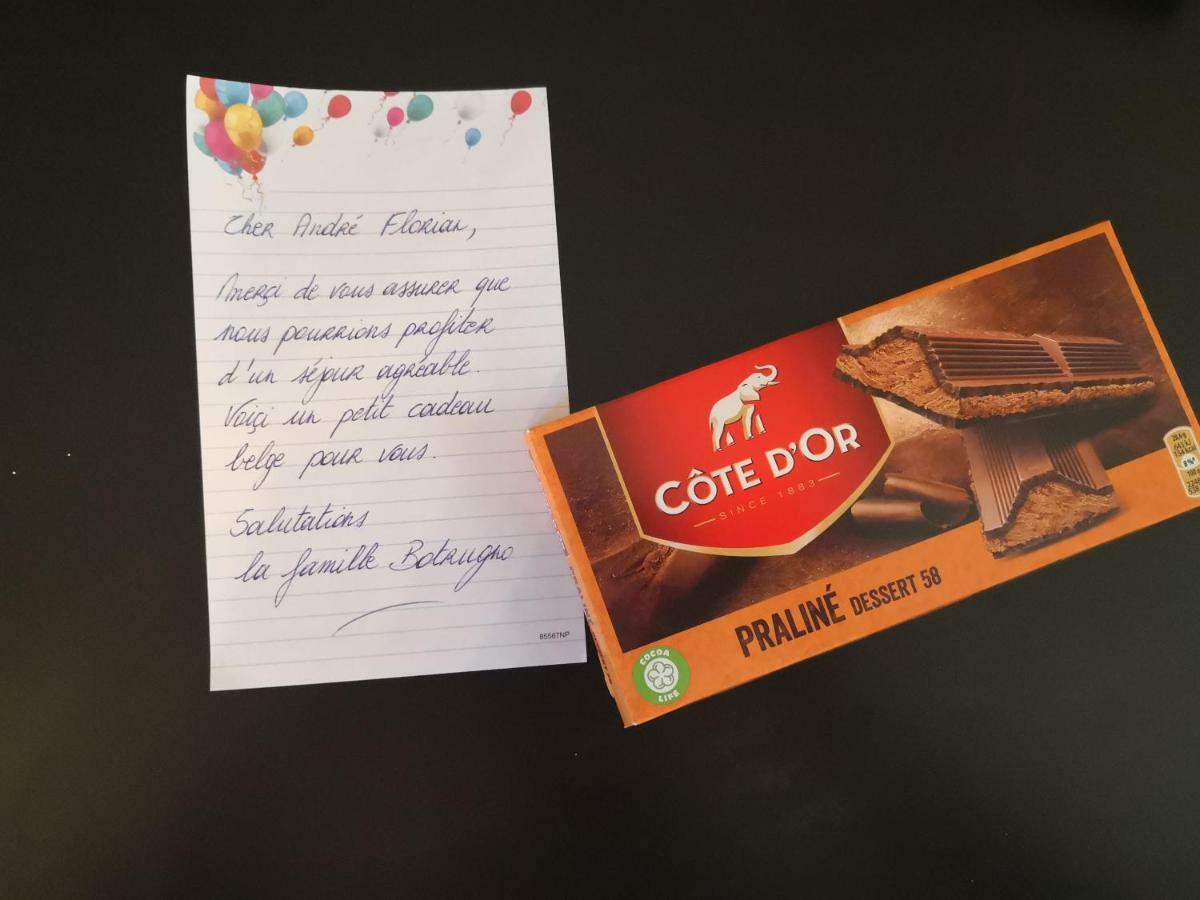 Cher André Florian,
Merçi de vous assurer que
nous pourrions profiter
d'un séjour agréable.
Voiçi un petit cadeau
belge pour vous.
Salutations
la famille Botrugno
85567NP
CÔTE D'OR
SINCE 1883
PRALINÉ DESSERT 58
COCOA
LIFE
8%*